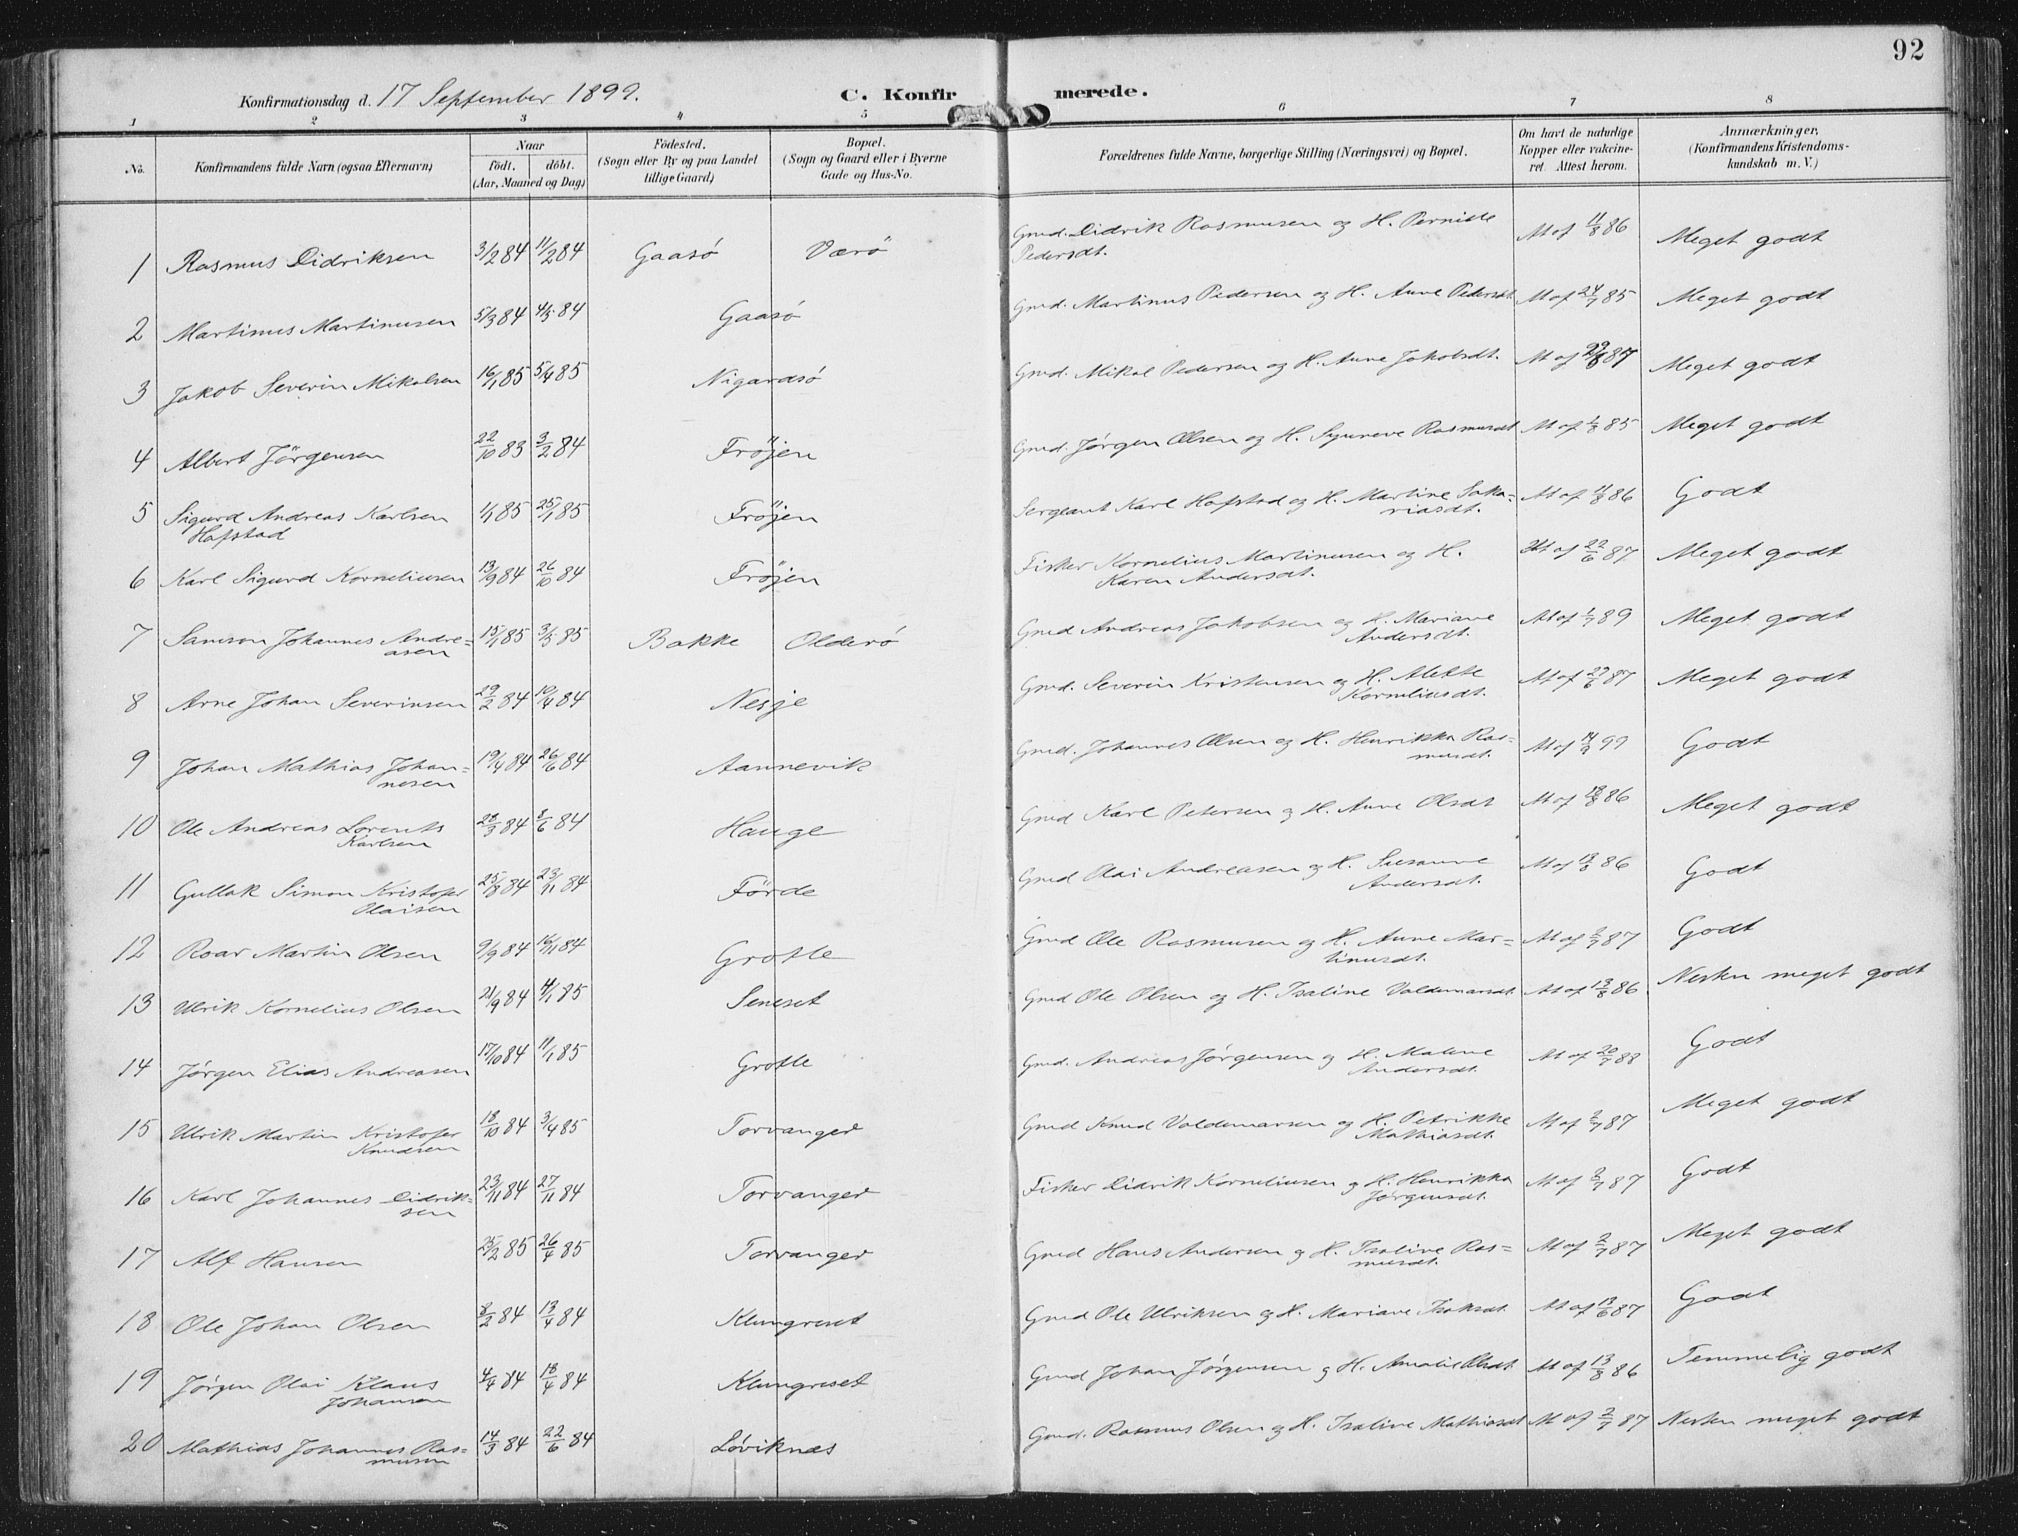 92
Konfirmationsdag d. 17 September 1899.
C. Konfirmerede.
1 2 3 4 5 6 7 8
No. Konfirmandens fulde Navn (ogsaa Efternavn) Naar födt. döbt. (Aar, Maaned og Dag) Födested. (Sogn eller By og paa Landet tillige Gaard) Bopæl. (Sogn og Gaard eller i Byerne Gade og Hus-No. Forældrenes fulde Navne, borgerlige Stilling (Næringsvei) og Bopæl. Om havt de naturlige Kopper eller vakcineret. Attest herom. Anmærkninger, (Konfirmandens Kristendomskundskab m. V.)
1 Rasmus Didriksen 3/2 84 11/2 84 Gaasö Værö Gmd. Didrik Rasmusen og H. Pernille Pedersdt. At af 11/8 86 Meget godt
2 Martinus Martinusen 5/3 84 4/5 84 Gaasö Gmd. Martinus Pedersen og H. Anne Pedersdt. At af 24/7 85 Meget godt
3 Jakob Severin Mikalsen 16/1 85 5/4 85 Nigardsö Gmd. Mikal Pedersen og H. Anne Jakobsdt. At af 87 Meget godt
4 Albert Jörgensen 22/10 83 3/2 84 Fröjen Gmd. Jørgen Olsen og H. Synneve Rasmusdt At af 85 Meget godt
5 Sigurd Andreas Karlsen Hofstad 1/1 85 25/1 85 Fröjen Sergeant Karl Hofstad og H. Martine Sakariasdt. At af 11/8 86 Godt
6 Karl Sigurd Korneliusen 13/9 84 26/10 84 Fröjen Fisker Kornelius Martinusen og H. Karen Andersdt. At af 22/6 87 Meget godt
7 Samson Johannes Andreasen 15/1 85 3/5 85 Bakke Olderö Gmd Andreas Jakobsen og H. Mariane Andersdt. At af 1/7 89 Meget godt
8 Arne Johan Severinsen 29/2 84 10/4 84 Nesje Gmd. Severin Kristensen og H. Alette Korneliusdt. At af 87 Meget godt
9 Johan Mathias Johannesen 19/4 84 26/6 84 Aannevik Gmd. Johannes Olsen og H. Henrikka Rasmusdt. At af 99 Godt
10 Ole Andreas Lorents Karlsen 28/3 84 8/6 84 Hauge Gmd Karl Petersen og H. Anne Olsdt At af 86 Meget godt
11 Gullak Simon Kristofer Olaisen 25/8 84 23/11 84 Förde Gmd Olai Andreasen og H. Susanne Andersdt. At af 86 Godt
12 Roar Martin Olsen 9/9 84 16/11 84 Grotle Gmd Ole Rasmusen og H. Anne Martinusdt. At af 2/7 87 Godt
13 Ulrik Kornelius Olsen 21/9 84 4/1 85 Seneset Gmd Ole Olsen og H. Isaline Valdemarsdt. At af 13/8 86 Nesten meget godt
14 Jørgen Elias Andreasen 17/10 84 11/1 85 Grotle Gmd. Andreas Jørgensen og H. Malene Andersdt. At af 20/7 88 Godt
15 Ulrik Martin Kristofer Knudsen 18/10 84 3/4 85 Torvanger Gmd Knud Valdemarsen og H. Petrikke Mathiasdt. At af 2/7 87 Meget godt
16 Karl Johannes Didriksen 23/11 84 27/11 84 Torvanger Fisker Didrik Korneliusen og H. Henrikka Jørgensdt. At af 2/7 87 Godt
17 Alf Hansen 25/2 85 26/4 85 Torvanger Gmd Hans Andersen og H. Isaline Rasmusdt. At af 2/7 87 Meget godt
18 Ole Johan Olsen 8/2 84 13/4 84 Klungreset Gmd Ole Ulriksen og H. Mariane Isaksdt. At af 87 Godt
19 Jørgen Olai Klaus Johansen 4/4 84 18/4 84 Klungreset Gmd Johan Jørgensen og H. Amalie Olsdt. At af 13/8 86 Temmelig godt
20 Mathias Johannes Rasmusen 14/3 84 22/6 84 Løviknæs Gmd. Rasmus Olsen og H. Isaline Mathiasdt At af 2/7 87 Nesten meget godt